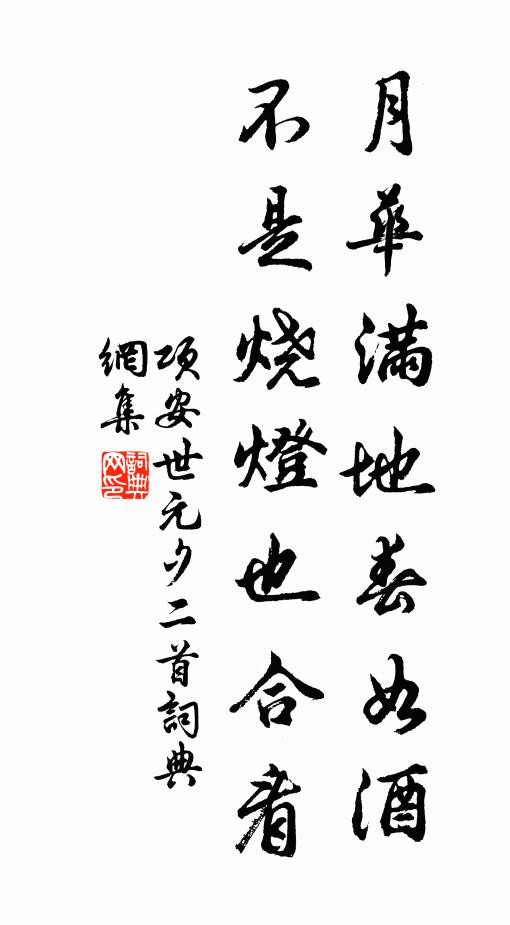 月華滿地春如酒
不是烧燈也合看
項安世元夕二首詞典
網集
詞典網印